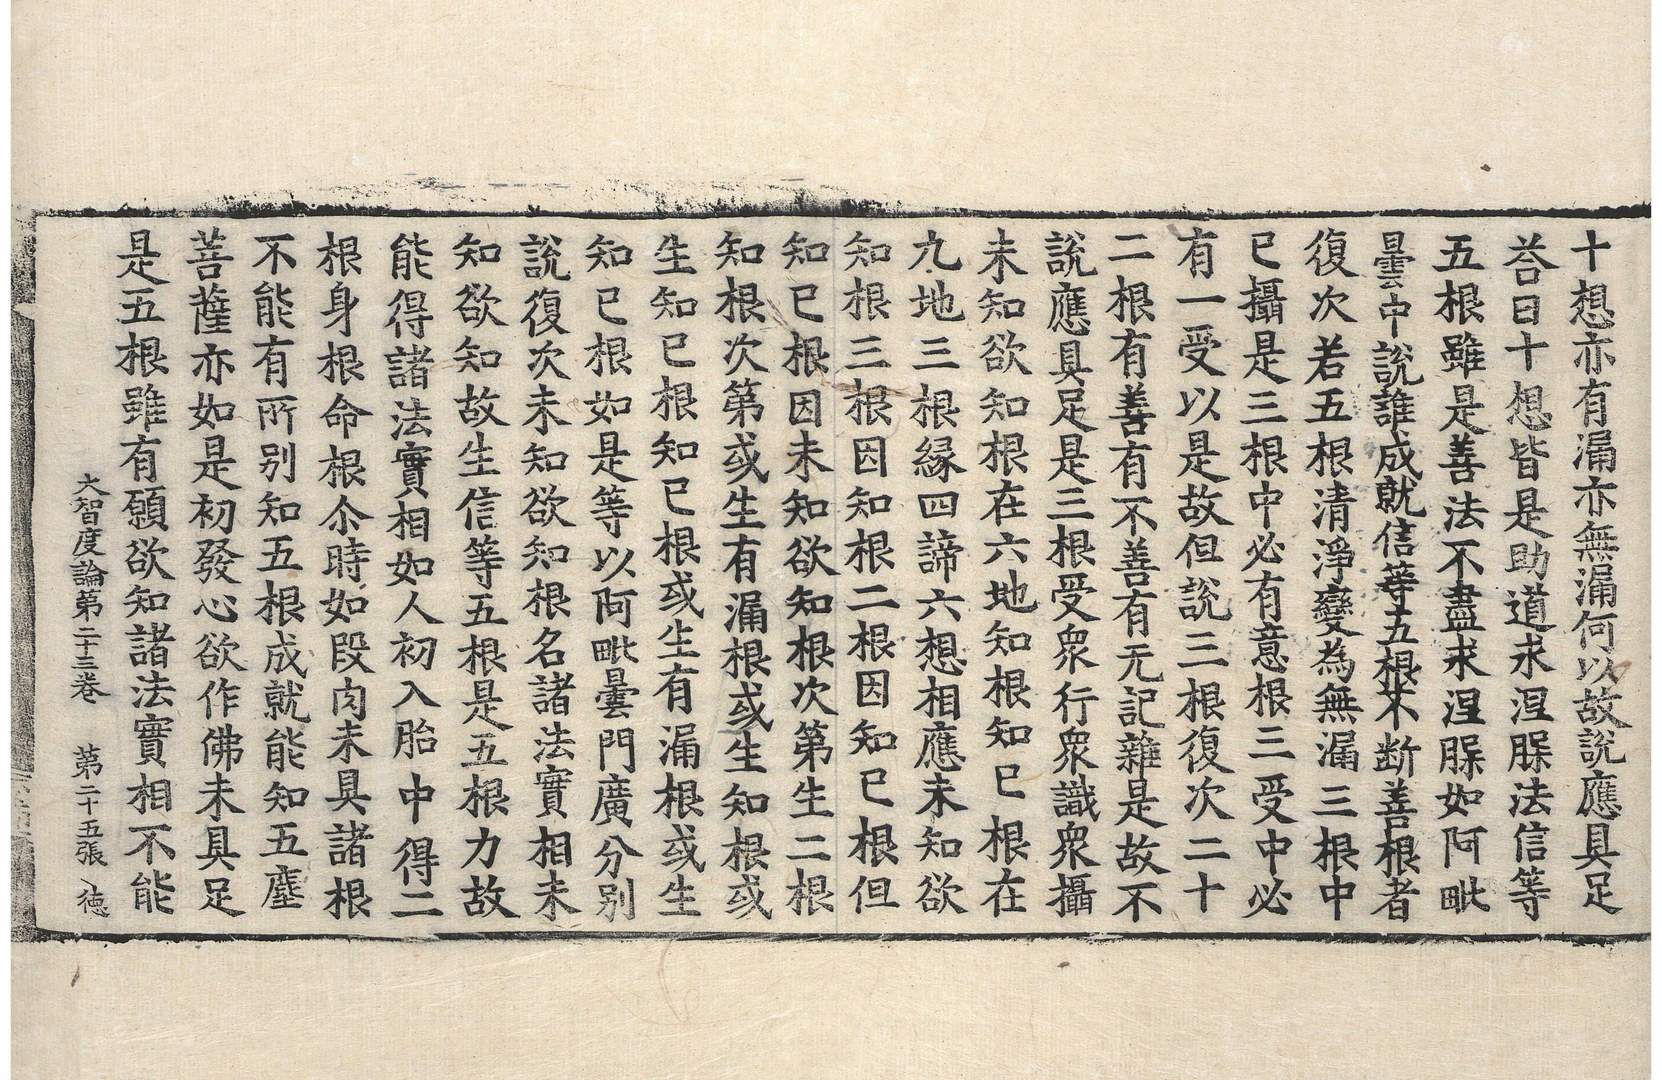 十想亦有漏亦無漏何以故說應具足
荅曰十想皆是助道求涅脲法信等
五根雖是善法不盡求涅脲如阿毗
曇中說誰成就信等五根不断善根者
復次若五根清淨變為無漏三根中
已攝是三根中必有意根三受中必
有一受以是故但說三根復次二十
二根有善有不善有无記雜是故不
說應具足是三根受衆行衆識衆攝
未知欲知根在六地知根知已根在
九地三根緣四諦六想相應未知欲
知根三根因知根二根因知已根但
知已根因未知欲知根次第生二根
知根次第或生有漏根或生知根或
生知已根知已根或生有漏根或生
知已根如是等以阿毗曇門廣分別
說復次未知欲知根名諸法實相未
知欲知故生信等五根是五根力故
能得諸法實相如人初入胎中得二
根身根命根尒時如段肉未具諸根
不能有所別知五根成就能知五塵
菩薩亦如是初發心欲作佛未具足
是五根雖有願欲知諸法實相不能
大智度論第二十三卷 第二十五張 德